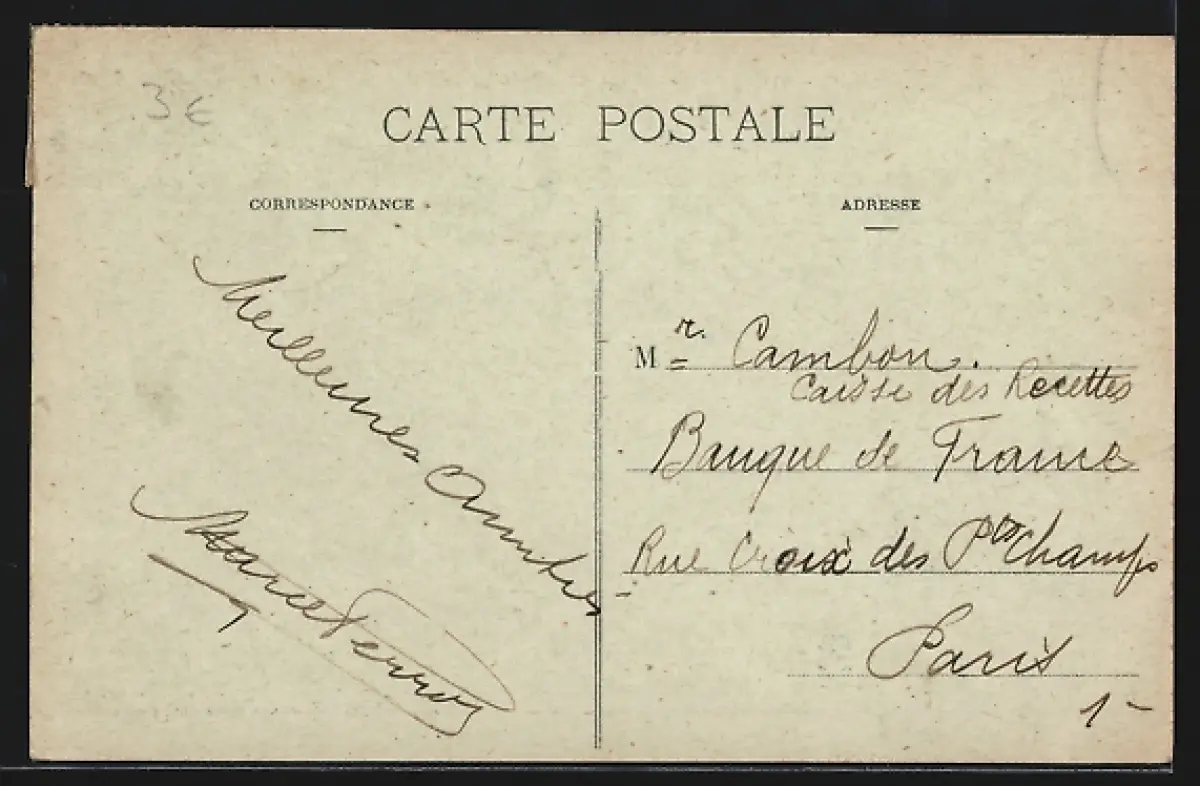 3 €
CARTE POSTALE
CORRESPONDANCE
Meilleures Amitiés
Marcel
ADRESSE
Mr. Cambon.
Caisse des Recettes
Banque de France
Rue Croix des Pts Champs
Paris
1-